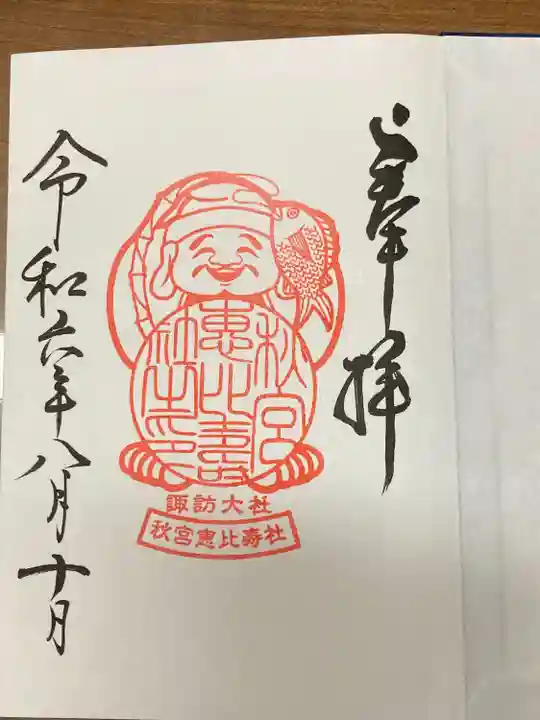 奉拝
秋宮
恵比寿
社之印
諏訪大社
秋宮恵比寿社
令和六年八月十日